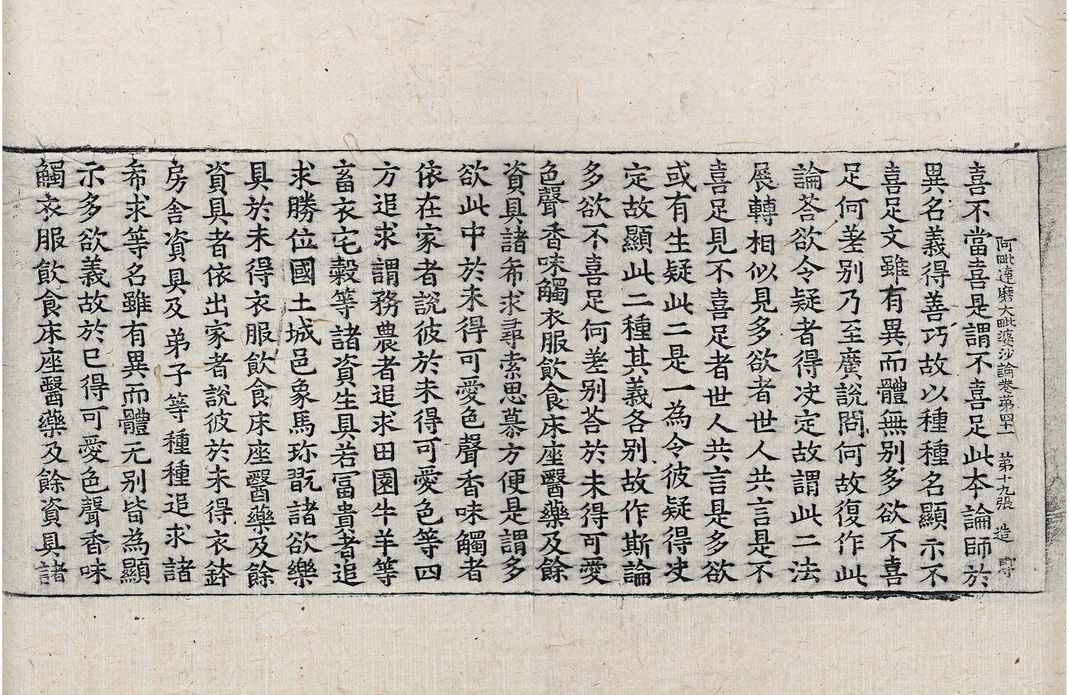 阿毗達磨大毗婆沙論卷第四十一 第十九張 造
喜不當喜是謂不喜足此本論師於
異名義得善巧故以種種名顯示不
喜足文雖有異而體無別多欲不喜
足何差别乃至廣說問何故復作此
論荅欲令疑者得决定故謂此二法
展轉相似見多欲者世人共言是不
喜足見不喜足者世人共言是多欲
或有生疑此二是一為令彼疑得决
定故顯此二種其義各别故作斯論
多欲不喜足何差别荅於未得可愛
色聲香味觸衣服飲食床座醫藥及餘
資具諸希求尋索思慕方便是謂多
欲此中於未得可愛色聲香味觸者
依在家者說彼於未得可愛色等四
方追求謂務農者追求田園牛羊等
畜衣宅穀等諸資生具若富貴者追
求勝位國土城邑象馬珎翫諸欲樂
具於未得衣服飲食床座醫藥及餘
資具者依出家者說彼於未得衣鉢
房舍資具及弟子等種種追求諸
希求等名雖有異而體无别皆為顯
示多欲義故於已得可愛色聲香味
觸衣服飲食床座醫藥及餘資具諸